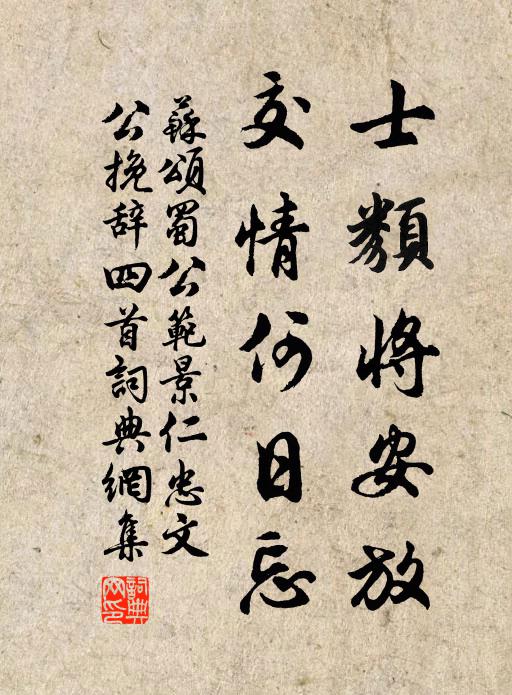 士類將安放
交情何日忘
蘇頌蜀公範景仁忠文
公挽辞四首詞典網集
詞典網印